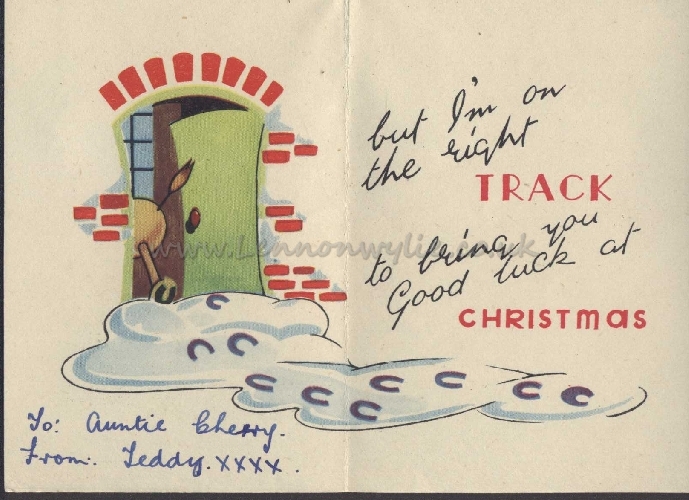 but I'm on
the right
TRACK
to bring you
Good luck at
CHRISTMAS
www.Lennonwylie.co.uk
To: Auntie Cherry.
From: Teddy. xxxx.